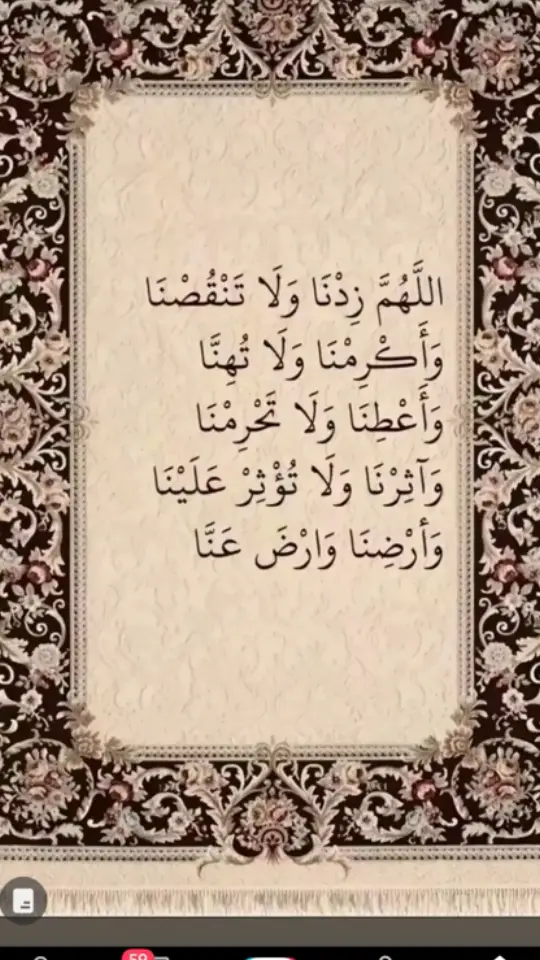 اللَّهُمَّ زِدْنَا وَلَا تَنْقُصْنَا
وَأَكْرِمْنَا وَلَا تُهِنَّا
وَأَعْطِنَا وَلَا تَحْرِمْنَا
وَآثِرْنَا وَلَا تُؤْثِرْ عَلَيْنَا
وَأَرْضِنَا وَارْضَ عَنَّا
59